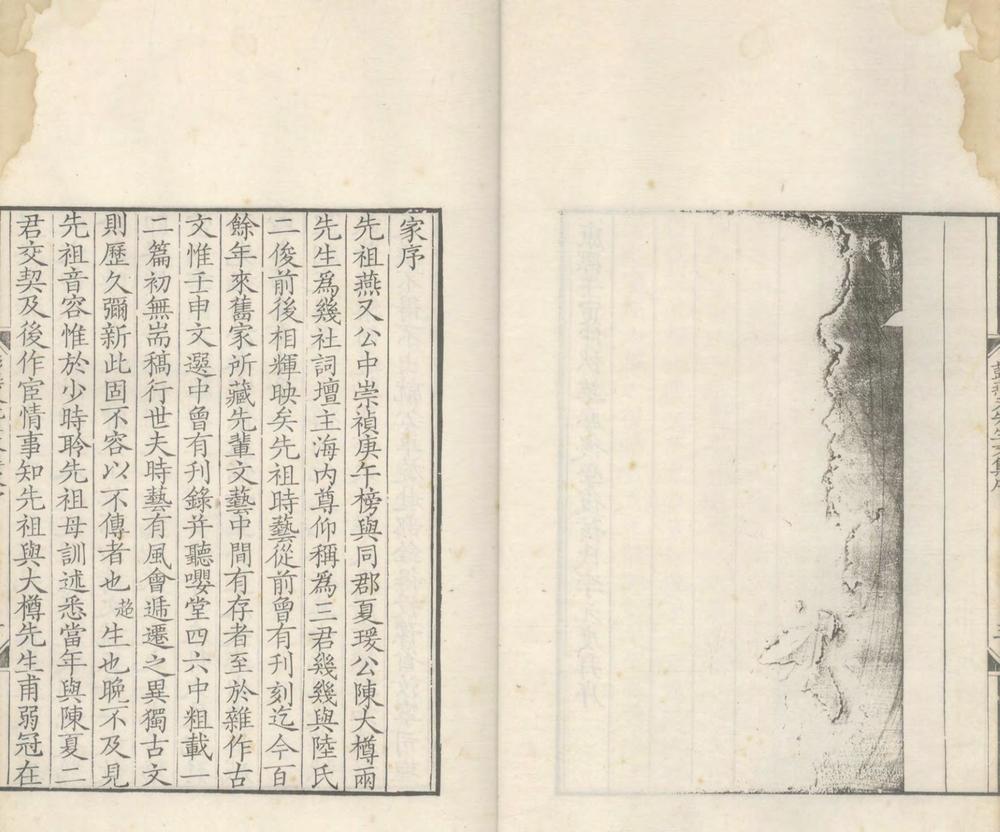 家序
先祖燕又公中崇禎庚午榜與同郡夏瑗公陳大樽兩
先生爲幾社詞壇主海内尊仰稱爲三君幾幾與陸氏
二俊前後相輝映矣先祖時藝從前曾有刊刻迄今百
餘年來舊家所藏先輩文藝中間有存者至於雜作古
文惟壬申文選中曾有刊錄并聽嚶堂四六中粗載一
二篇初無耑稿行世夫時藝有風會遞遷之異獨古文
則歷久彌新此固不容以不傳者也趋生也晚不及見
先祖音容惟於少時聆先祖母訓述悉當年與陳夏二
君交契及後作宦情事知先祖與大樽先生甫弱冠在